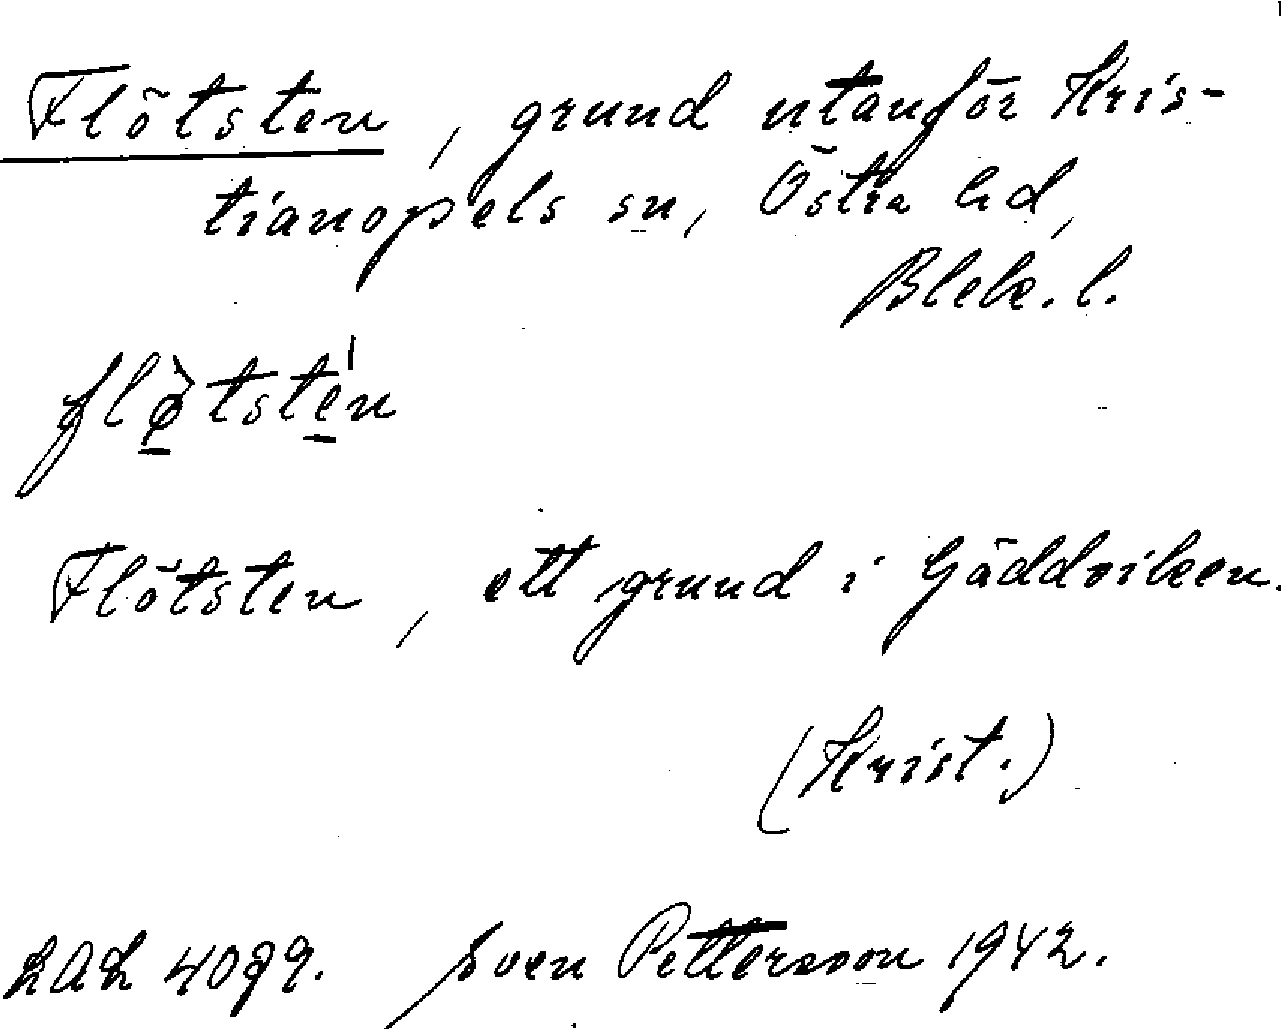 Flötsten, grund utanför Kris-
tianopels sn, Östra hd,
Blek. l.
flø̀tste̍n
Flötsten, ett grund i Gäddviken.
(Krist.)
LAL 4099. Sven Pettersson 1942.